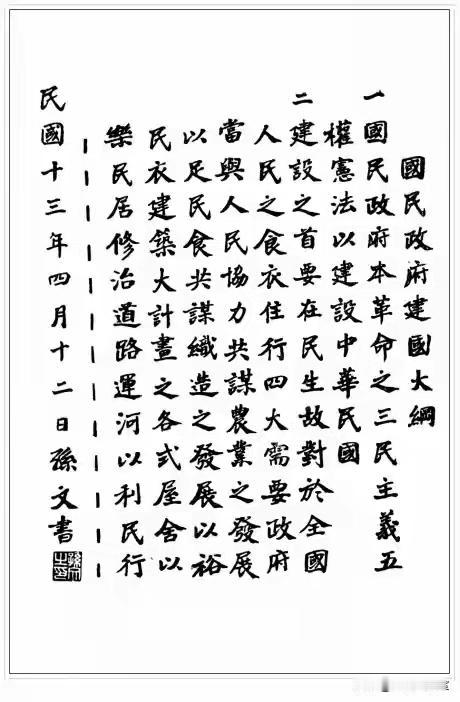 國民政府建國大綱
一國民政府本革命之三民主義五
權憲法以建設中華民國
二建設之首要在民生故對於全國
人民之食衣住行四大需要政府
當與人民協力共謀農業之發展
以足民食共謀織造之發展以裕
民衣建築大計畫之各式屋舍以
樂民居修治道路運河以利民行
民國十三年四月十二日孫文書
孫文之印